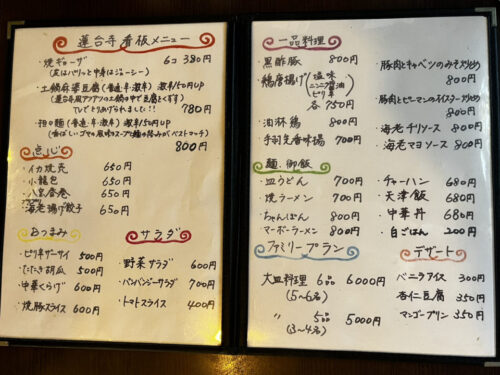 蓮台寺看板メニュー
・焼ギョーザ 6コ 380円
(皮はパリッと中身はジューシー)
・土鍋麻婆豆腐(普通・辛・激辛) 激辛150円UP
(蓮台寺風アツアツの土鍋の中で豆腐とくずす)
TVでとりあげられました!!
780円
・担々麺(普通・辛・激辛) 激辛150円UP
(香ばしいゴマの風味のスープと麺の絡みがベストマッチ)
800円
点心
・イカ焼売 650円
・小籠包 650円
・春巻 650円
・海老揚げ餃子 650円
おつまみ
・ピリ辛ザーサイ 500円
・たたき胡瓜 500円
・中華くらげ 600円
・焼豚スライス 600円
サラダ
・野菜サラダ 600円
・バンバンジーサラダ 700円
・トマトスライス 400円
一品料理
・黒酢豚 800円
・鶏唐揚げ 塩味
ニンニク醤油
ピリ辛
各750円
・油淋鶏 800円
・手羽先香味揚 700円
・豚肉とキャベツのみそ炒め
800円
・豚肉とピーマンのオイスター炒め
800円
・海老チリソース 800円
・海老マヨソース 800円
麺、御飯
・皿うどん 700円
・焼ラーメン 700円
・ちゃんぽん 800円
・マーボーラーメン 800円
・チャーハン 680円
・天津飯 680円
・中華丼 680円
・白ごはん 200円
ファミリープラン
大皿料理 6品 6000円
(5~6名)
〃 5品 5000円
(3~4名)
デザート
・バニラアイス 300円
・杏仁豆腐 350円
・マンゴープリン 350円